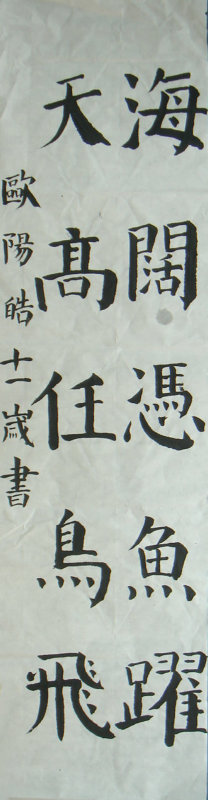 海闊憑魚躍
天高任鳥飛
歐陽皓十一歲書